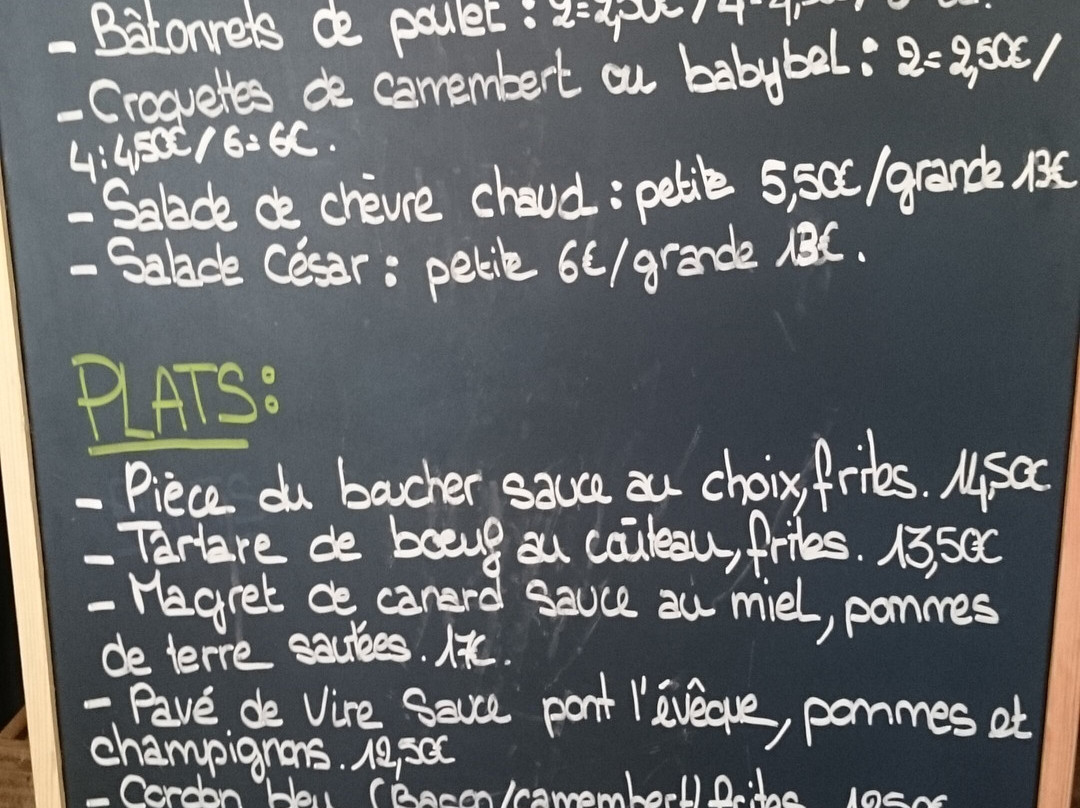 - Bâtonnets de poulet : 2=2,50€ / 4=4,
- Croquettes de camembert ou babybel : 2=2,50€/
4:4,50€/6=6€.
- Salade de chèvre chaud : petite 5,50€/grande 13€
- Salade César : petite 6€/grande 13€.
PLATS:
- Pièce du boucher sauce au choix, frites. 14,50€
- Tartare de boeuf au coûteau, frites. 13,50€
- Magret de canard sauce au miel, pommes
de terre sautées. 17€.
- Pavé de Vire Sauce pont l'évêque, pommes et
champignons. 12,50€
- Cordon bleu (Bacon/camembert) frites 12,50€